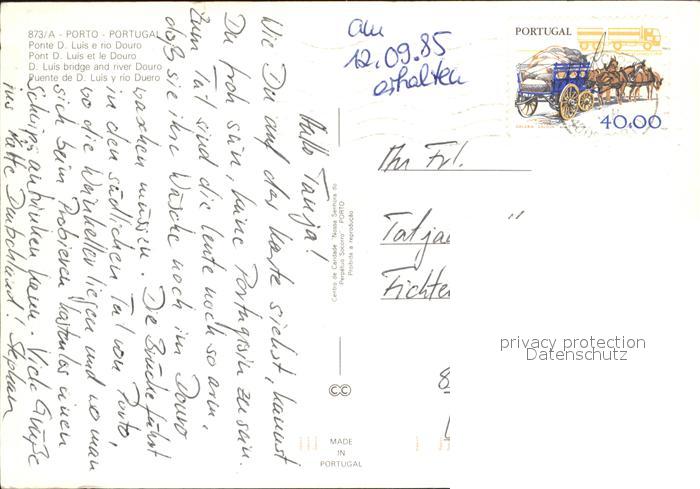 873/A - PORTO - PORTUGAL
Ponte D. Luis e rio Douro
Pont D. Luis et le Douro
D. Luis bridge and river Douro
Puente de D. Luis y rio Duero
Hallo Tanja!
Wie Du auf der Karte siehst, kannst
Du froh sein, keine Portugisin zu sein.
Zum Teil sind die Leute noch so arm,
daß sie ihre Wäsche noch im Douro
waschen müssen. Die Brücke führt
in den südlichen Teil von Porto,
wo die Weinkeller liegen und wo man
sich beim Probieren kostenlos einen
Schwips antrinken kann. Viele Grüße
ins kalte Deutschland! Stephan
Centro de Caridade "Nossa Senhora do
Perpétuo Socorro" PORTO
Proibida a reprodução
CC
MADE
IN
PORTUGAL
am
12.09.85
erhalten
PORTUGAL
40.00
Frl.
Tatja
Fichte
8
privacy protection
Datenschutz